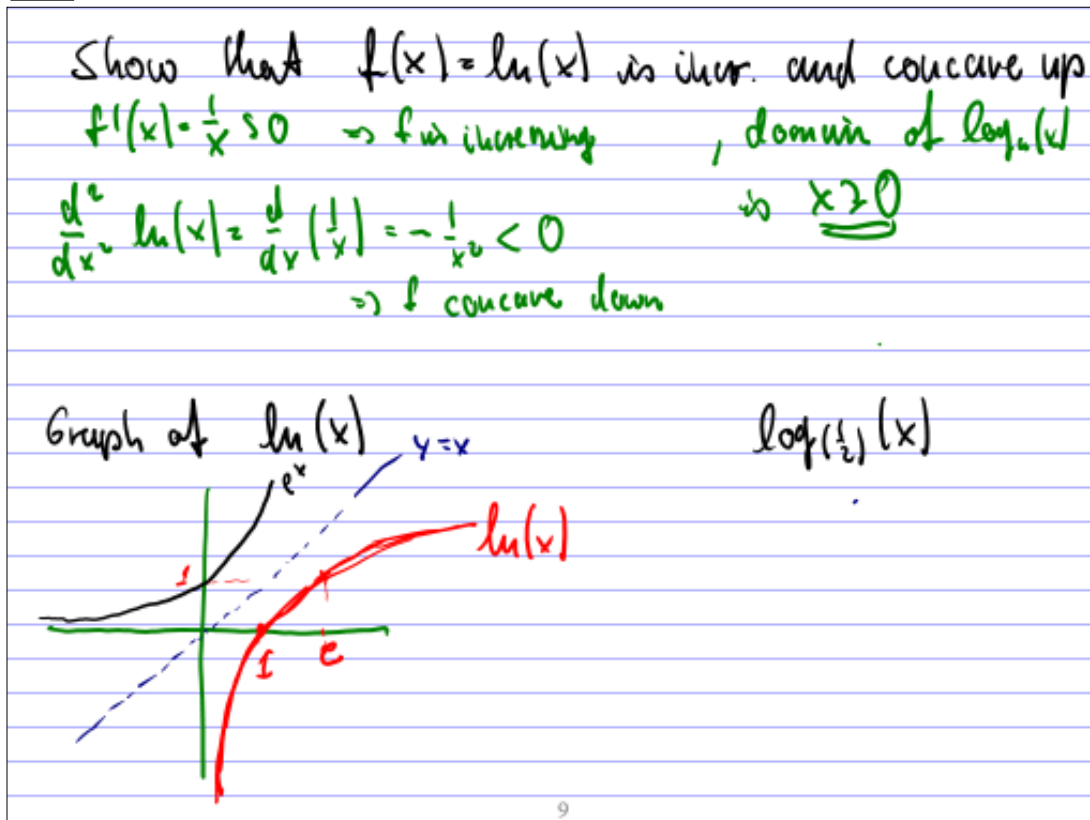 Show that f(x) = ln(x) is incr. and concave up
f'(x) = 1/x > 0 => f is increasing , domain of log_a(x)
is x > 0
d²/dx² ln(x) = d/dx (1/x) = - 1/x² < 0
=> f concave down
Graph of ln(x)
log_(1/2) (x)
y = x
e^x
ln(x)
1
1
e
9